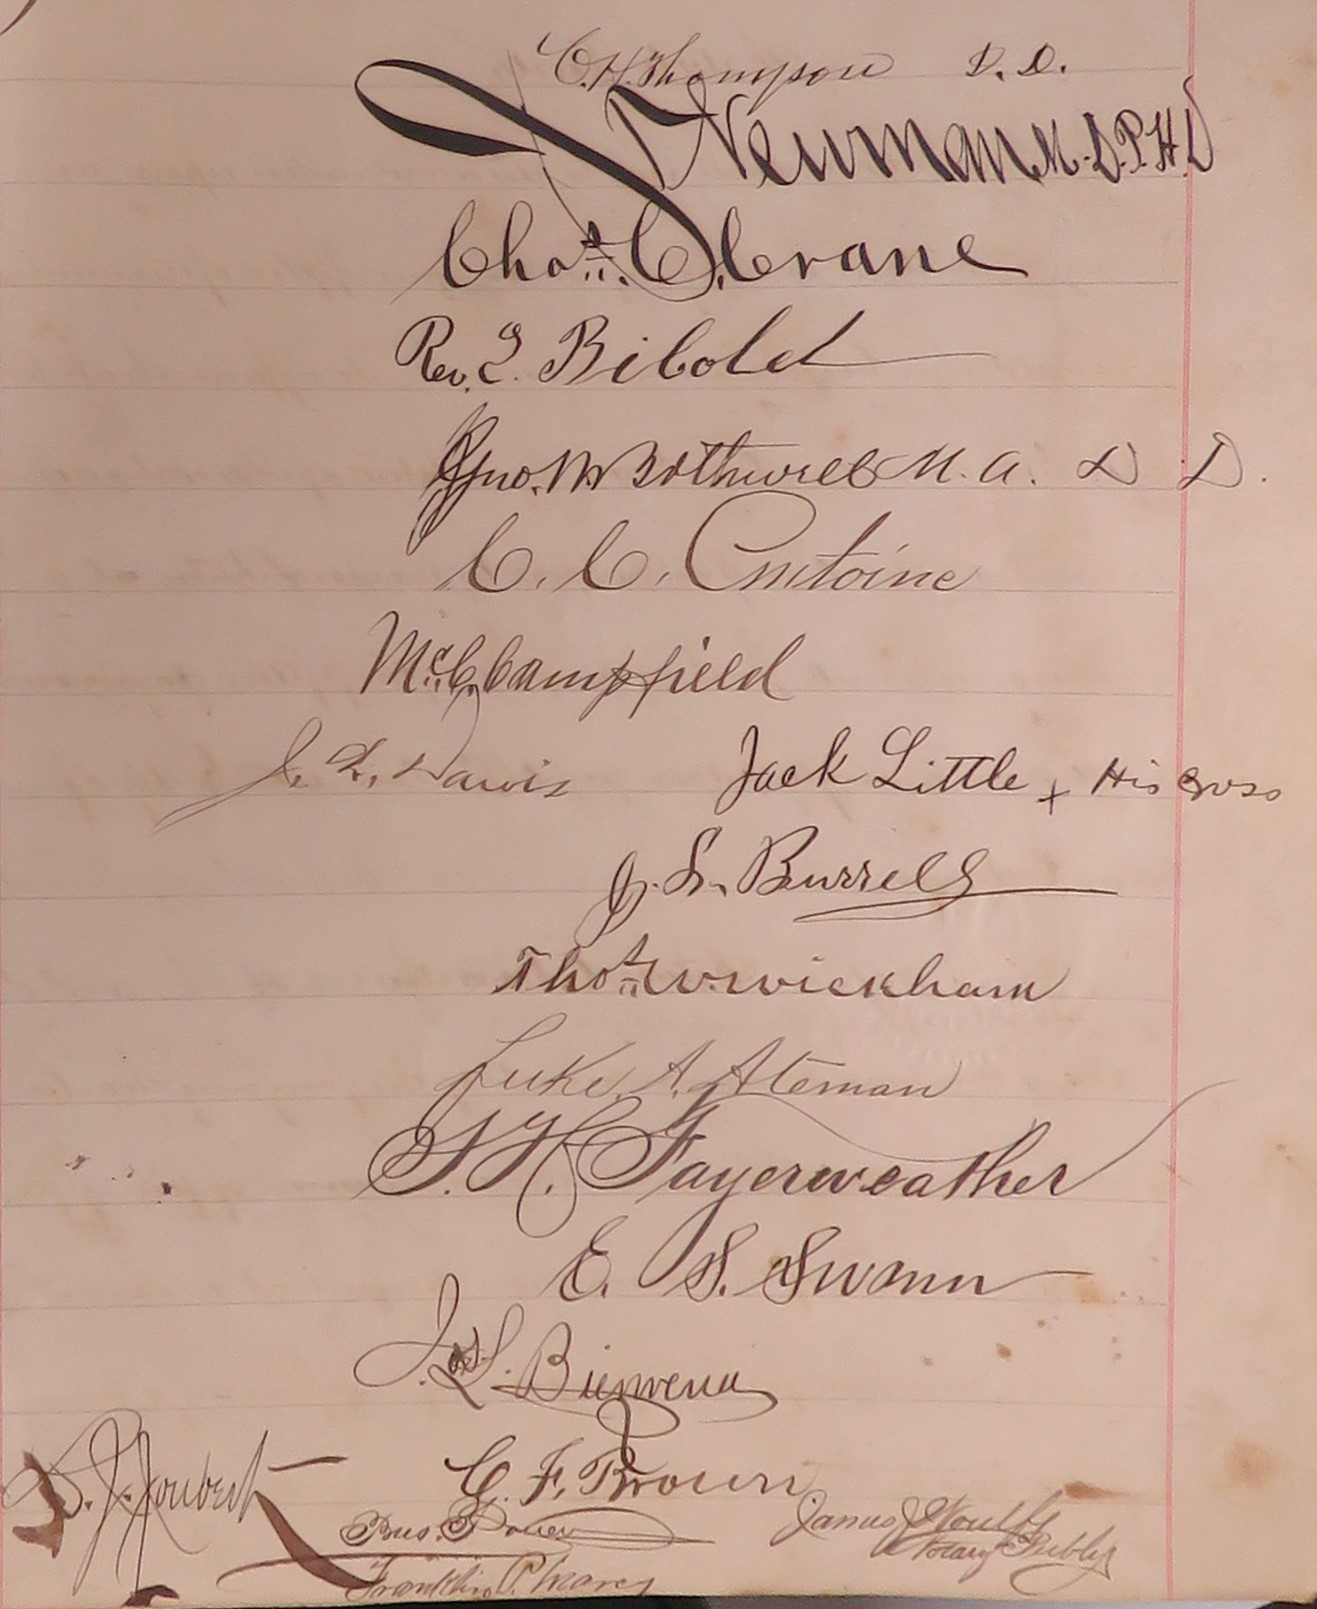 C. H. Thompson D. D.
J Newman M. D. P. H. D
Chas. C. Crane
Rev. I. Bibold
Jno. W Bothwell M. A. D D.
C. C. Antoine
McC. Campfield
J. L. Davis Jack Little + His Cross
J. S. Burrell
Thos. W. Wickham
Luke A. Ateman
S. H. Fayerweather
E. S. Swann
J. L. Bienvenu
B. J. Joubert C. F. Brown
James
Notary Public
Franklin P.